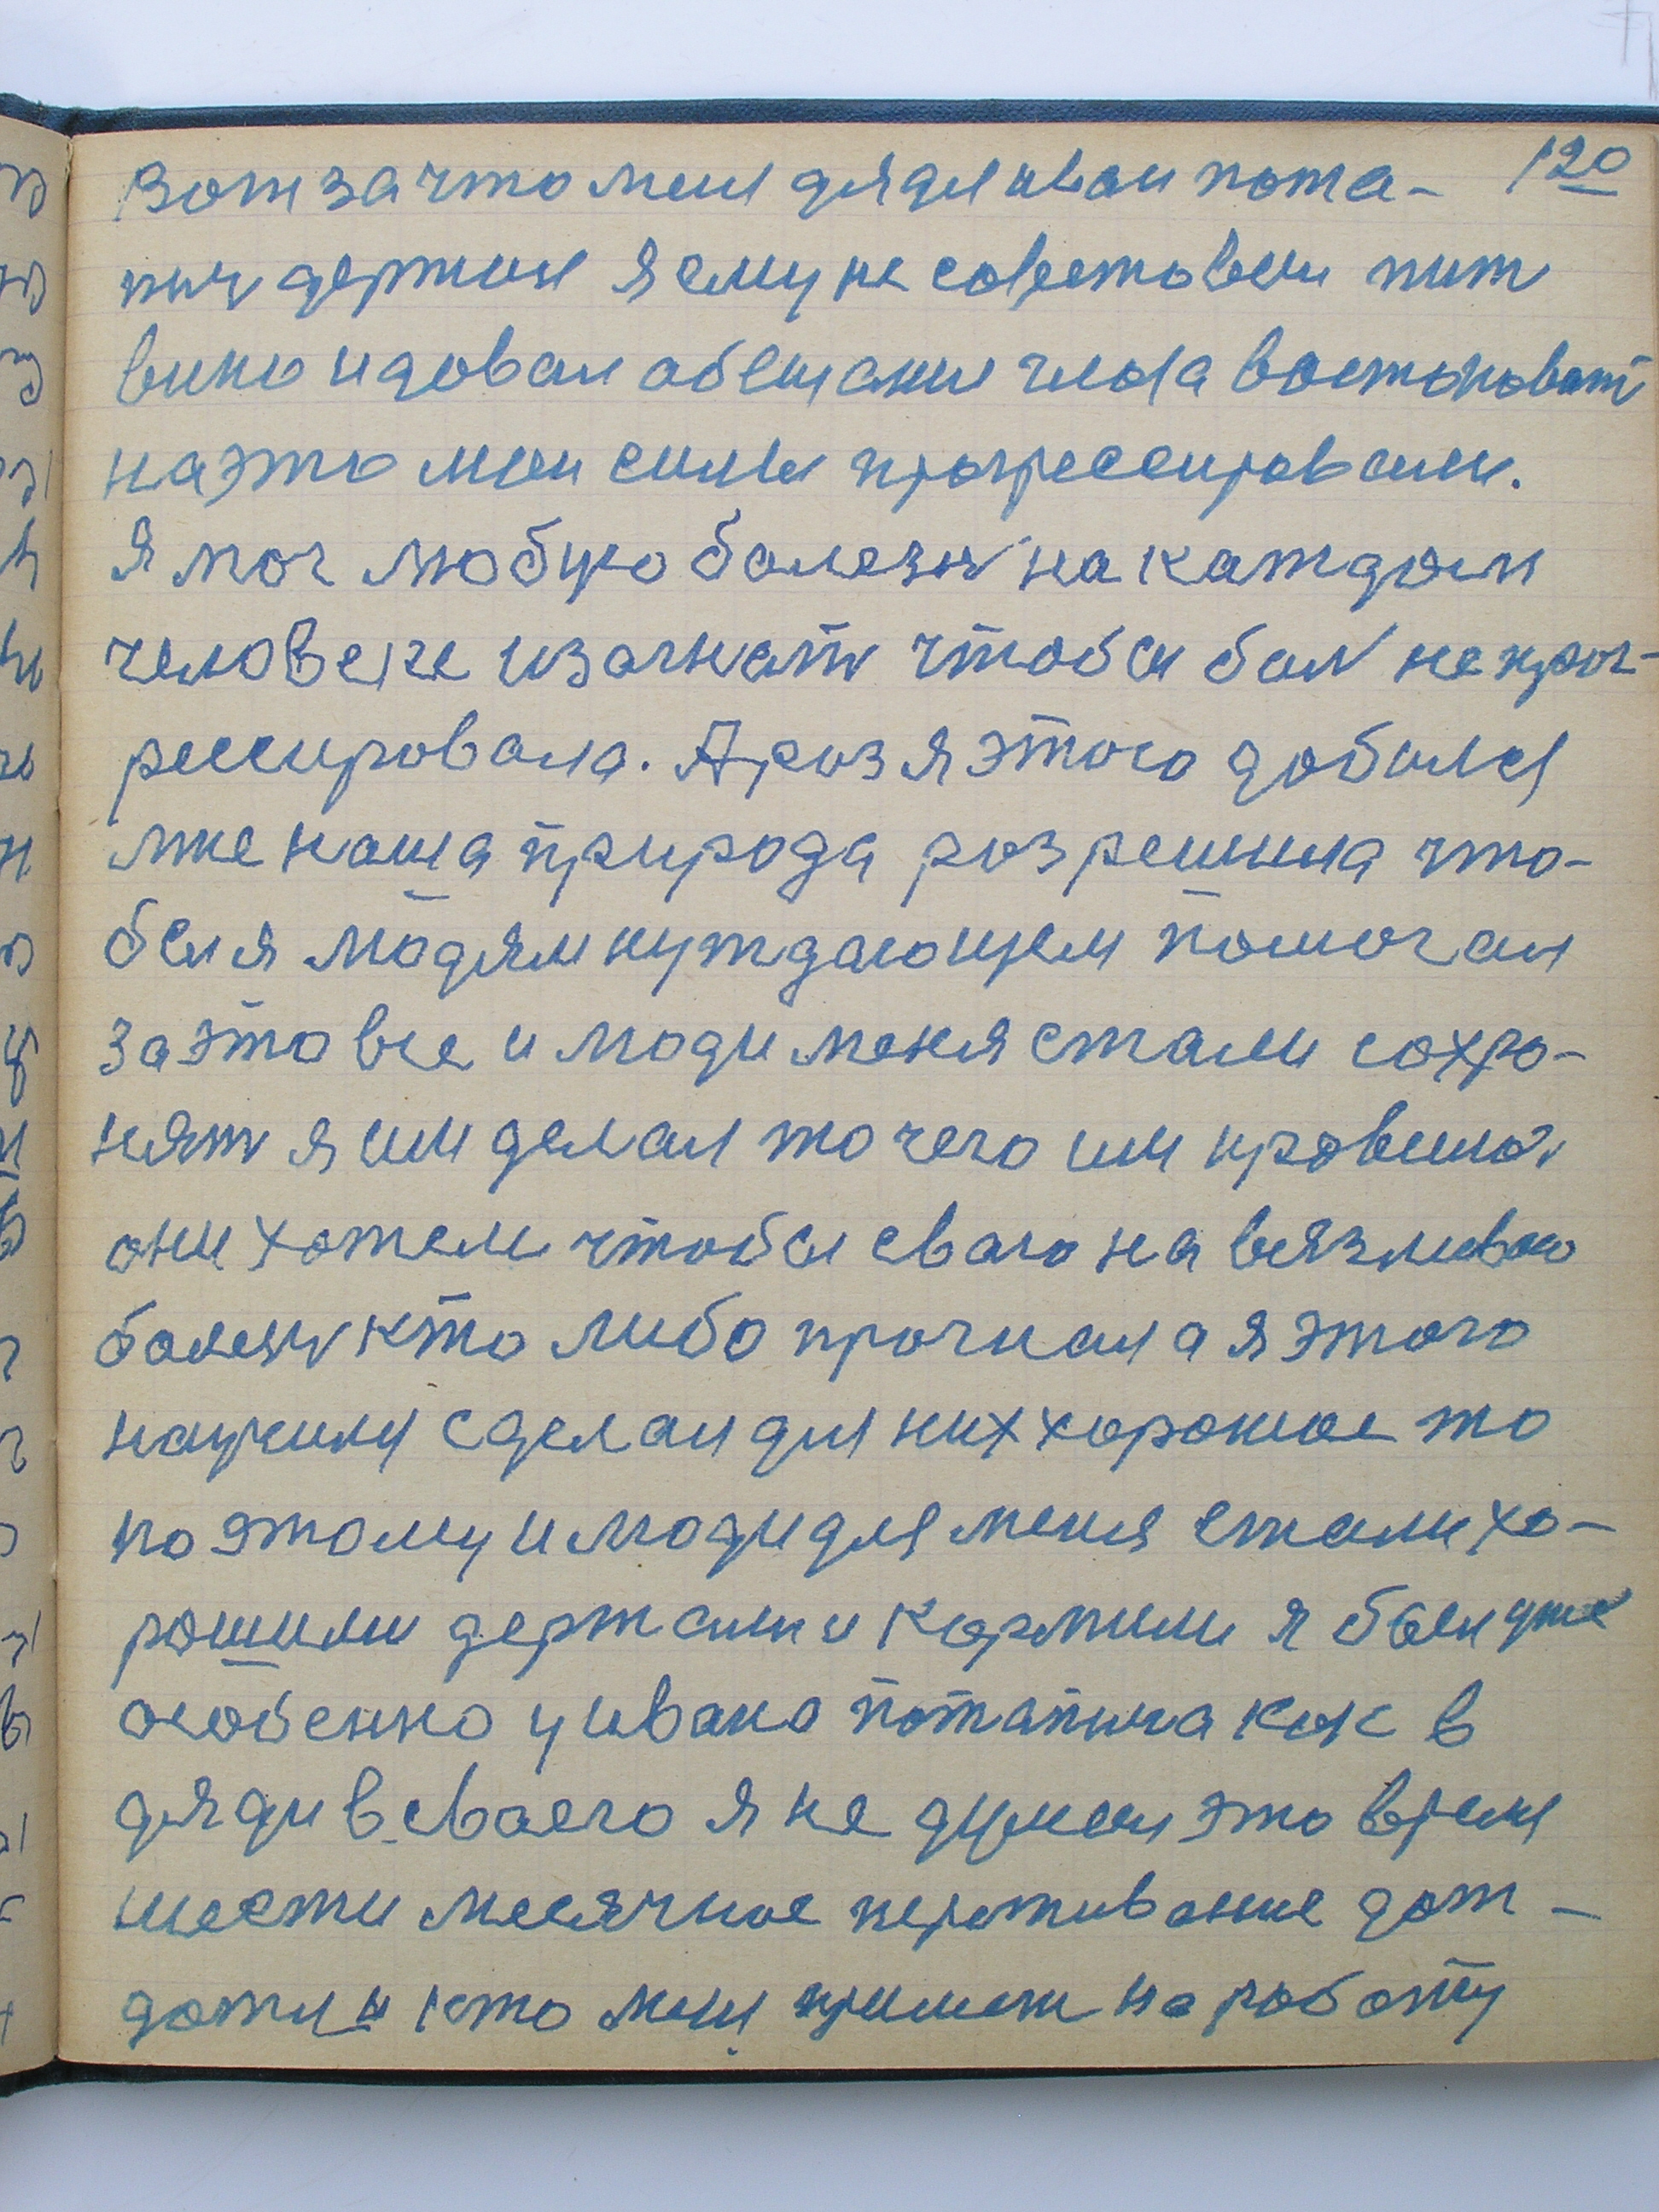 120
Вот за что меня дядя иван пота-
пыч держал я ему не советовал пит
вино и довал обещания глоза востоновит
на это мои силы прогрессировали.
Я мог любую болезнь на каждом
человеке изогнать чтобы бол не прог-
рессировала. А роз я этого добился
мне наша природа розрешила что-
бы я людям нуждающем помогал
за это все и люди меня стали сохро-
нять я им делал то чего им нровилос
они хотели чтобы сваю навязливою
болезн кто либо прогнал а я этого
научился сделал для них хорошое то
по этому и люди для меня стали хо-
рошими держали и кормили я был уже
особенно у ивана потапыча как в
дяди в сваего я не думал это время
шести месячное переживание дож-
дотця кто меня примет на роботу